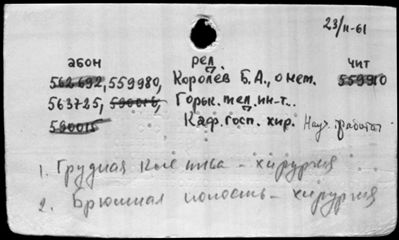 23/II-61
абон рел чит
562692, 559980, Королёв Б. А., о нем. 559910
563725, 590016, Горьк. мед. ин-т..
590015 Каф. госп. хир. Науч. работа
1. Грудная клетка - хирургия
2. Брюшная полость - хирургия